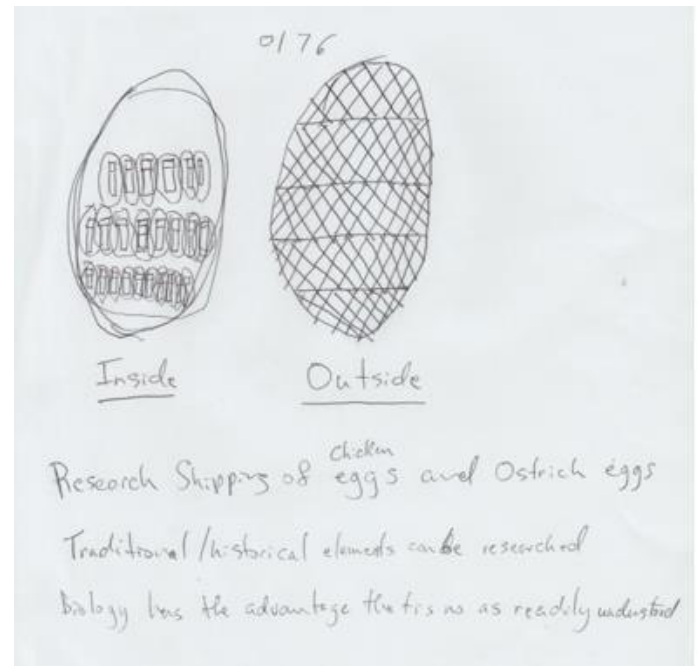 0176
Inside
Outside
Research Shipping of chicken eggs and Ostrich eggs
Traditional/historical elements can be researched
Biology has the advantage that is no as readily understood